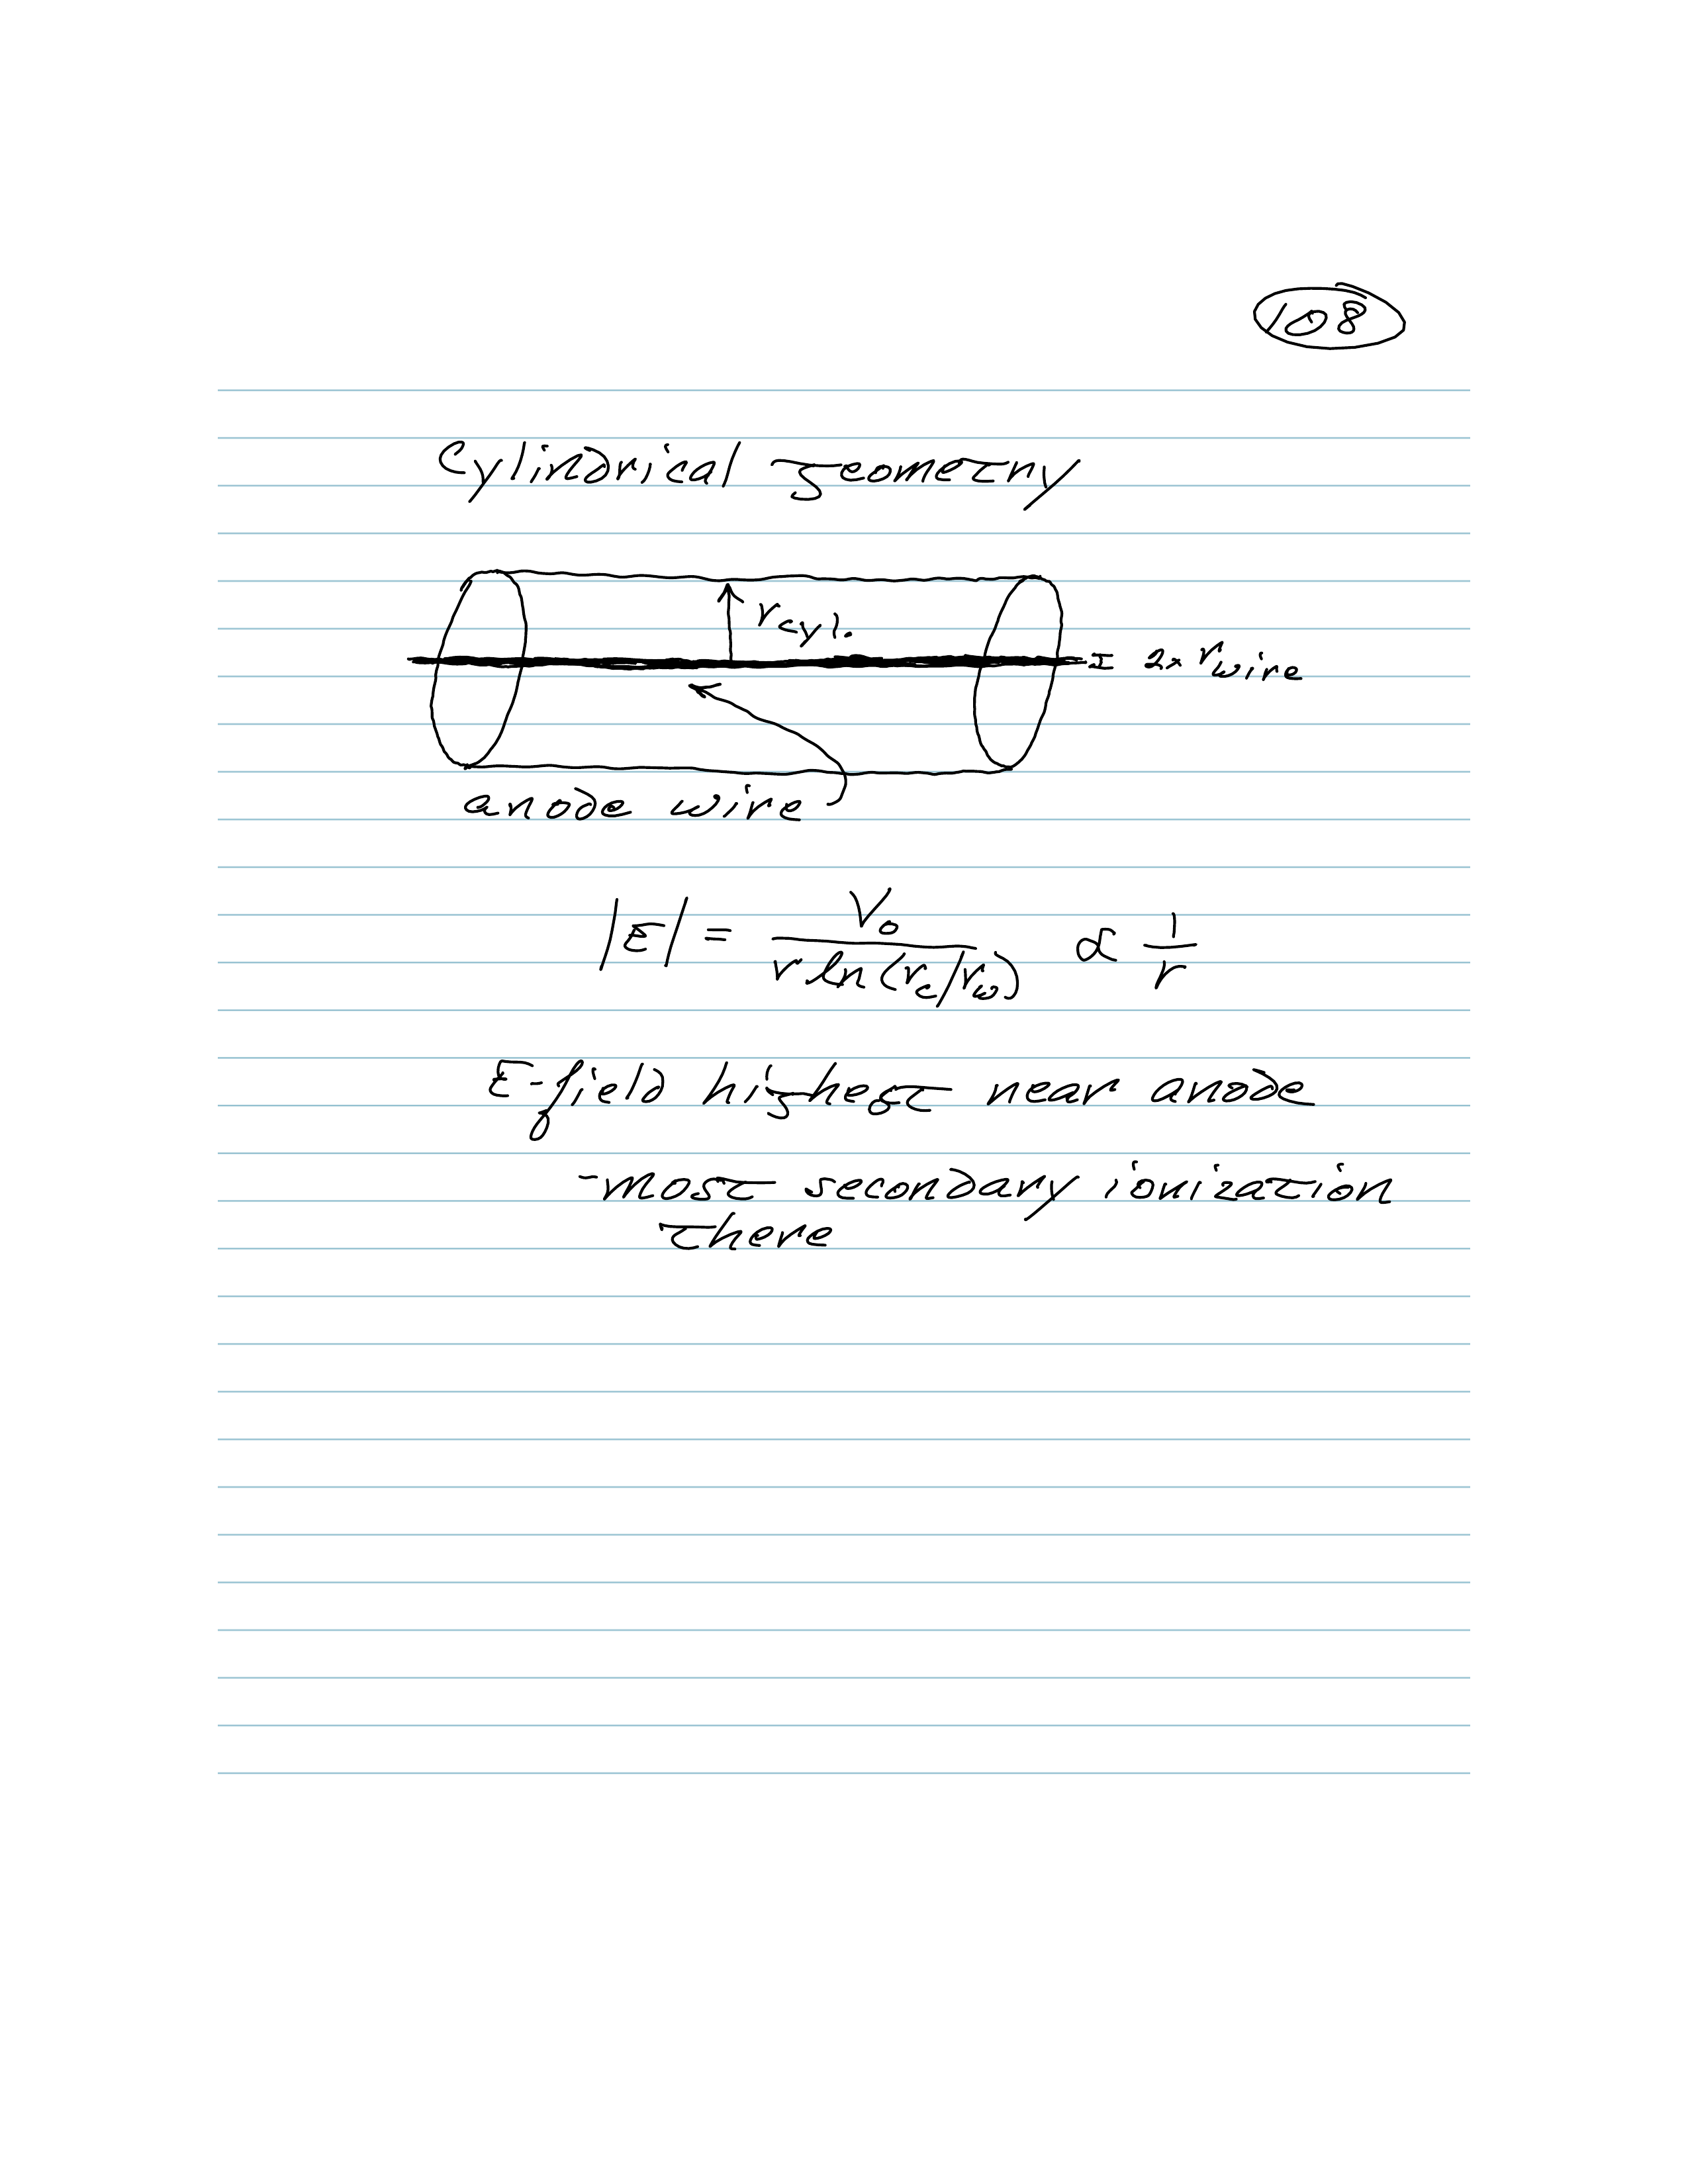 108
Cylindrical geometry
r cyl.
2x r wire
anode wire
|E| = V₀ / r ln(r_c/r_w) ∝ 1/r
E-field highest near anode
- most secondary ionization
there